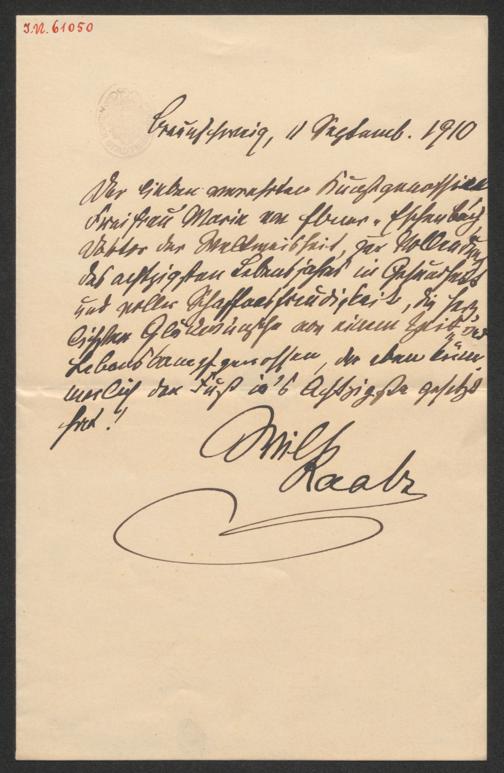 I.N. 61050
Braunschweig, 11 Septemb. 1910
Der lieben verehrten Kunstgenossin
Freifrau Marie von Ebner-Eschenbach,
Doktor der Weltweisheit, zur Vollendung
des achtzigsten Lebensjahres in Gesundheit
und voller Schaffensfreudigkeit, die herz-
lichsten Glückwünsche von einem Zeit- und
Lebenskampfgenossen, der eben küm-
merlich den Fuß in's Achtzigste gesetzt
hat!
Wilh
Raabe